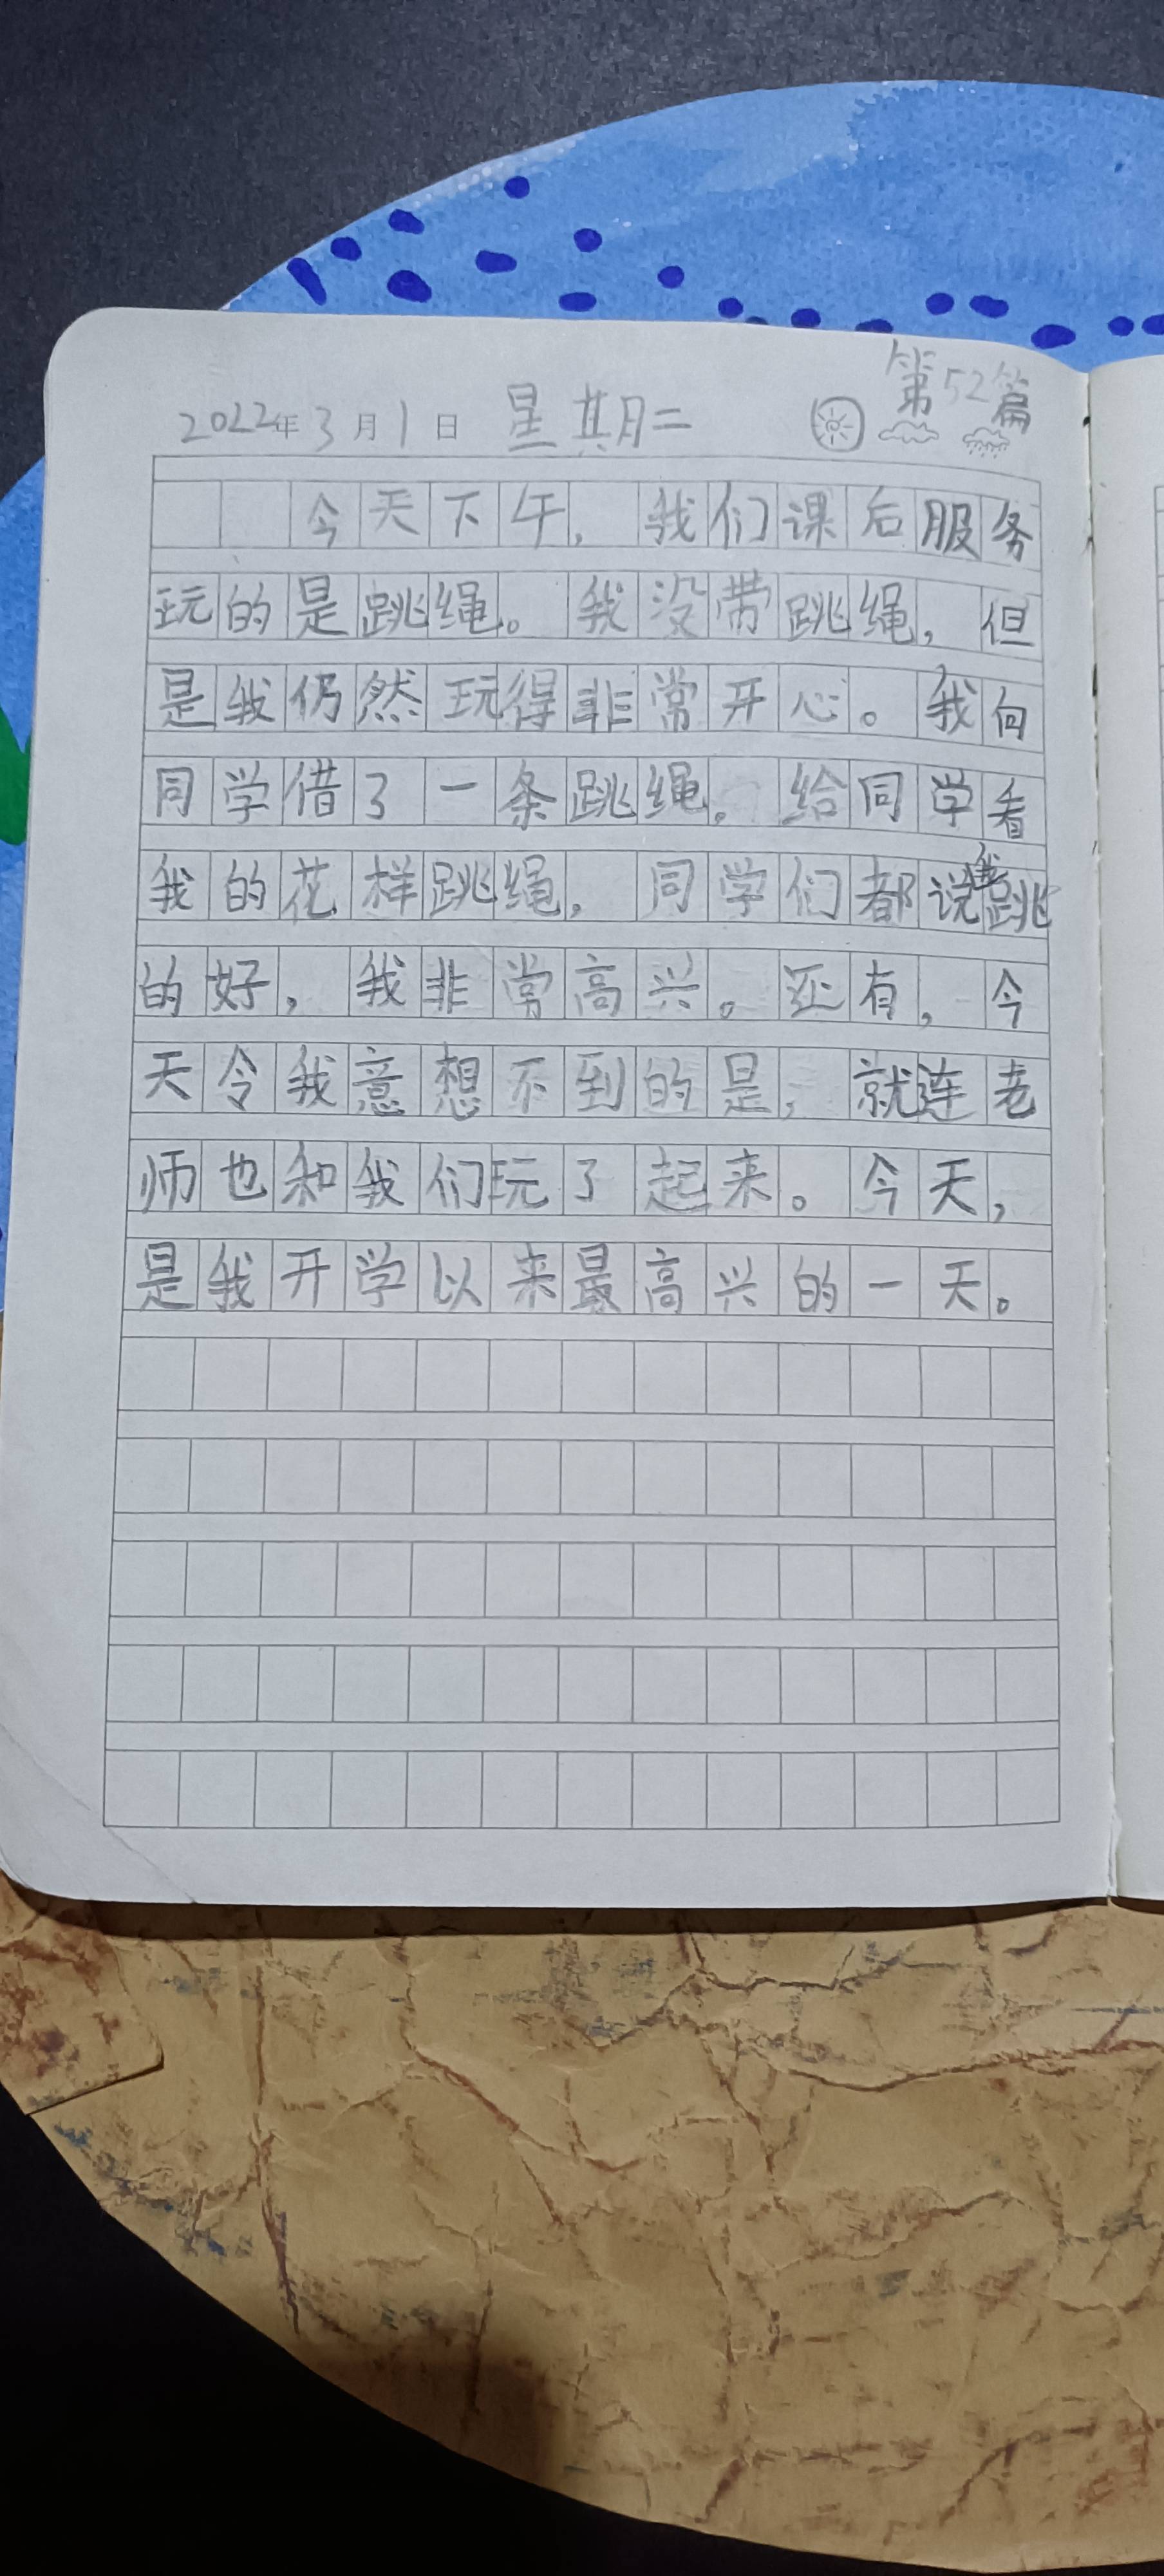 第52篇
2022年3月1日 星期二
今天下午，我们课后服务
玩的是跳绳。我没带跳绳，但
是我仍然玩得非常开心。我向
同学借了一条跳绳。给同学看
我的花样跳绳，同学们都说我跳
的好，我非常高兴。还有，今
天令我意想不到的是，就连老
师也和我们玩了起来。今天，
是我开学以来最高兴的一天。